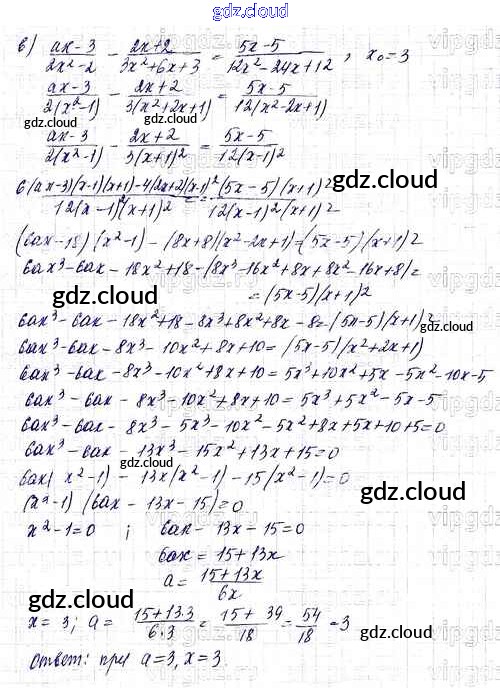 gdz.cloud
в) (ax-3)/(2x²-2) - (2x+2)/(3x²+6x+3) = (5x-5)/(12x²-24x+12), x₀=3
(ax-3)/(2(x²-1)) - (2x+2)/(3(x²+2x+1)) = (5x-5)/(12(x²-2x+1))
gdz.cloud gdz.cloud
(ax-3)/(2(x²-1)) - (2x+2)/(3(x+1)²) = (5x-5)/(12(x-1)²)
(6(ax-3)(x-1)(x+1)-4(2x+2)(x-1)²)/(12(x-1)²(x+1)²) = ((5x-5)(x+1)²)/(12(x-1)²(x+1)²)
gdz.cloud
(6ax-18)(x²-1)-(8x+8)(x²-2x+1)=(5x-5)(x+1)²
6ax³-6ax-18x²+18-(8x³-16x²+8x+8x²-16x+8)=
=(5x-5)(x+1)²
gdz.cloud
6ax³-6ax-18x²+18-8x³+8x²+8x-8=(5x-5)(x+1)²
gdz.cloud
6ax³-6ax-8x³-10x²+8x+10=(5x-5)(x²+2x+1)
6ax³-6ax-8x³-10x²+8x+10=5x³+10x²+5x-5x²-10x-5
6ax³-6ax-8x³-10x²+8x+10=5x³+5x²-5x-5
6ax³-6ax-8x³-5x³-10x²-5x²+8x+5x+10+5=0
6ax³-6ax-13x³-15x²+13x+15=0
gdz.cloud
6ax(x²-1)-13x(x²-1)-15(x²-1)=0
gdz.cloud
(x²-1)(6ax-13x-15)=0
x²-1=0 ; 6ax-13x-15=0
6ax=15+13x
a=(15+13x)/(6x)
gdz.cloud gdz.cloud
x=3; a=(15+13·3)/(6·3)=(15+39)/18=54/18=3
Ответ: при a=3, x=3.
gdz.cloud